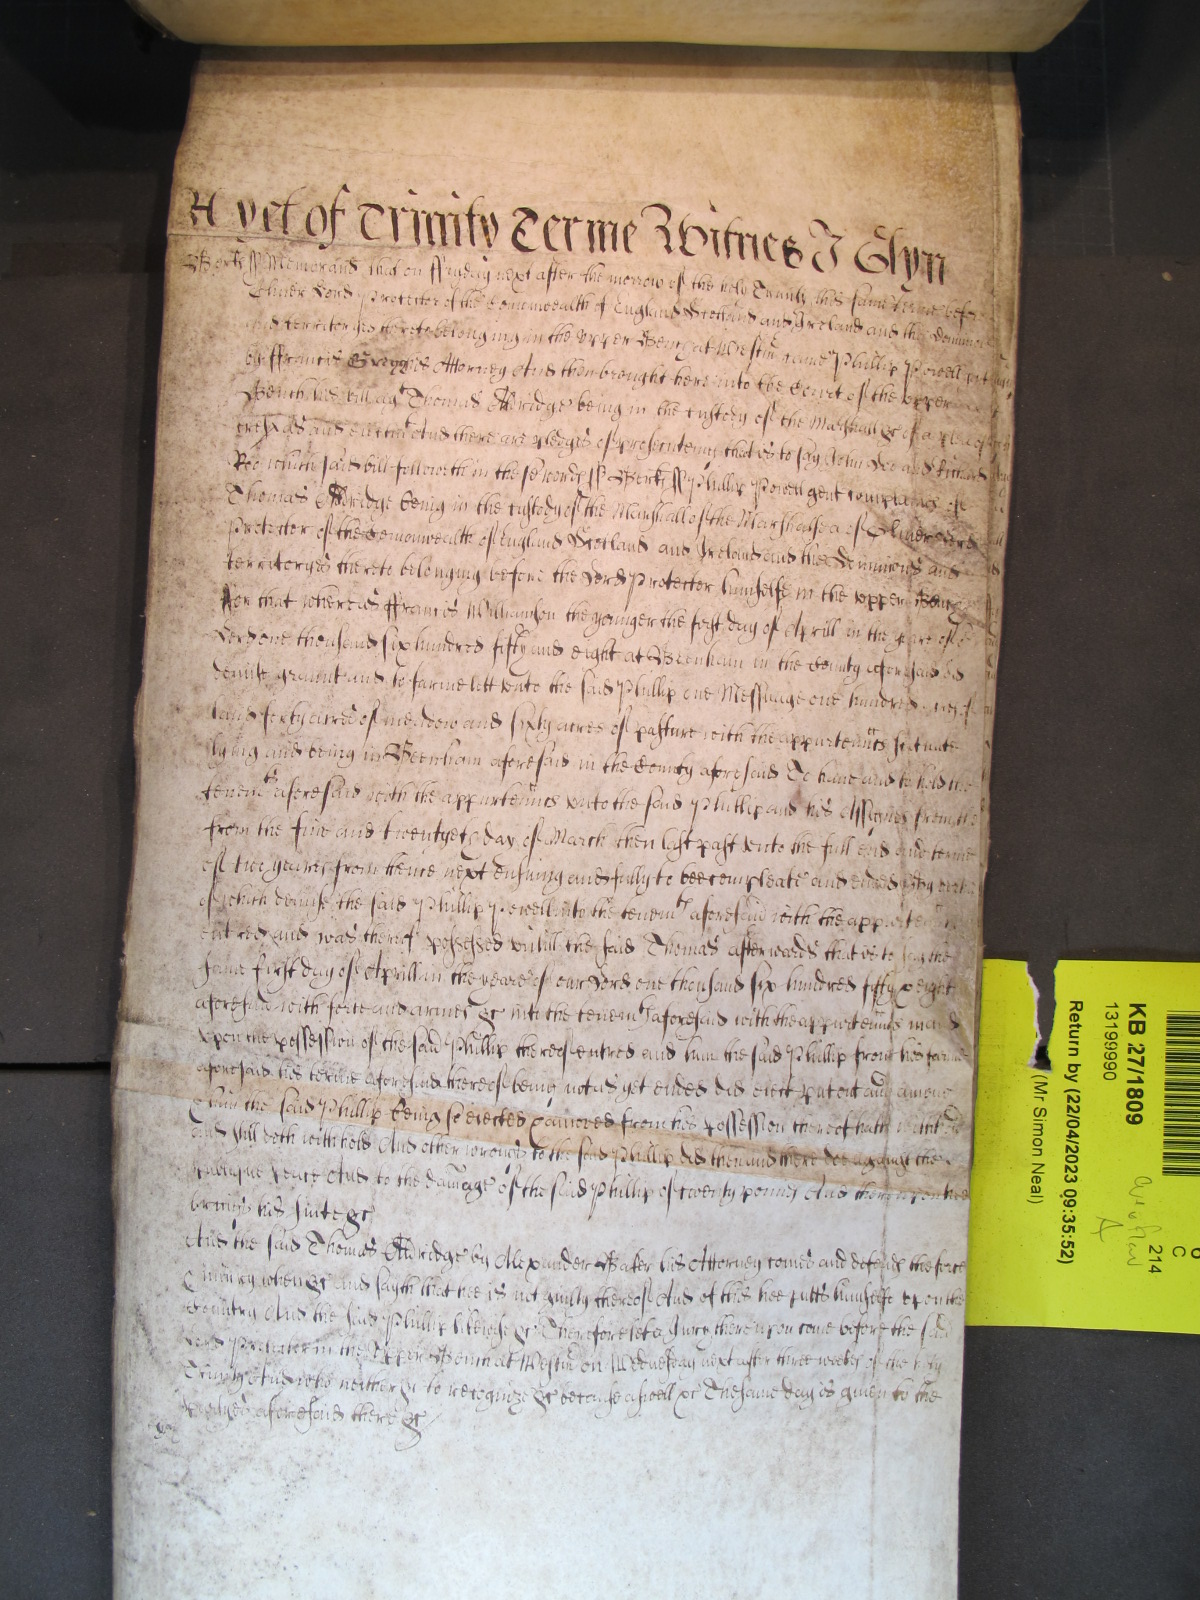 As yet of Trinity Terme Witnes J Glyn
Berks ss Memorand that on ffriday next after the morrow of the holy Trinity this same Terme before
Oliver Lord Protector of the Comonwealth of England Scotland and Ireland and the dominions
and territoryes thereto belonging in the upper Bench at Westm came Phillip Powell gent
by ffrancis Greggs his Attorney And then brought here into the Court of the upper
Bench his bill agt Thomas Aldridge being in the custody of the Marshall &c of a plea of
trespas and eiectmt And there are pledges of prosecuteing that is to say John Doe and Richard
Roe which said bill followeth in these words ss Berks ss Phillip Powell gent complaines of
Thomas Aldridge being in the custody of the Marshall of the Marshalsea of Oliver Lord
Protector of the Comonwealth of England Scotland and Ireland and the dominions and
territoryes thereto belonging before the Lord Protector himselfe in the upper Bench
ffor that whereas ffrancis Williamson the younger the first day of Aprill in the yeare of our
Lord one thousand six hundred fifty and eight at Beenham in the County aforesaid did
demise graunt and to farme lett unto the said Phillip one Messuage one hundred acres of
land forty acres of meadow and sixty acres of pasture with the appurtenncs scituate
lying and being in Beenham aforesaid in the County aforesaid To have and to hold the
tenemts aforesaid with the appurtenncs unto the said Phillip and his Assignes from
from the five and twentyeth day of March then last past unto the full end and terme
of five yeares from thence next ensuing and fully to bee compleate and ended By vertue
of which demise the said Phillip Powell into the tenemts aforesaid with the appurtenncs
entred and was thereof possessed untill the said Thomas afterwards that is to say the
same first day of Aprill in the yeare of our Lord one thousand six hundred fifty & eight
aforesaid with force and armes &c into the tenemts aforesaid with the appurtenncs in and
upon the possession of the said Phillip thereof entred and him the said Phillip from his farme
aforesaid his terme aforesaid thereof being not as yet ended did eiect put out and amove
And him the said Phillip being so eiected & amoved from his possession thereof hath withheld
and still doth withhold And other wrongs to the said Phillip did then and there doe against the
publique peace And to the damage of the said Phillip of twenty pounds And thereupon hee
brings his suite &c
And the said Thomas Aldridge by Alexander Baker his Attorney comes and defends the force
& iniury when &c And sayth that hee is not guilty thereof And of this hee putts himselfe upon the
Country And the said Phillip likewise &c Therefore lett a Jury thereupon come before the said
Lord Protector in the Upper Bench at Westm on Wednesday next after three weekes of the holy
Trinity And who neither &c to recognize &c because aswell &c The same day is given to the
partyes aforesaid there &c
KB 27/1809
13199990
Return by (22/04/2023 09:35:52)
(Mr Simon Neal)
214
C